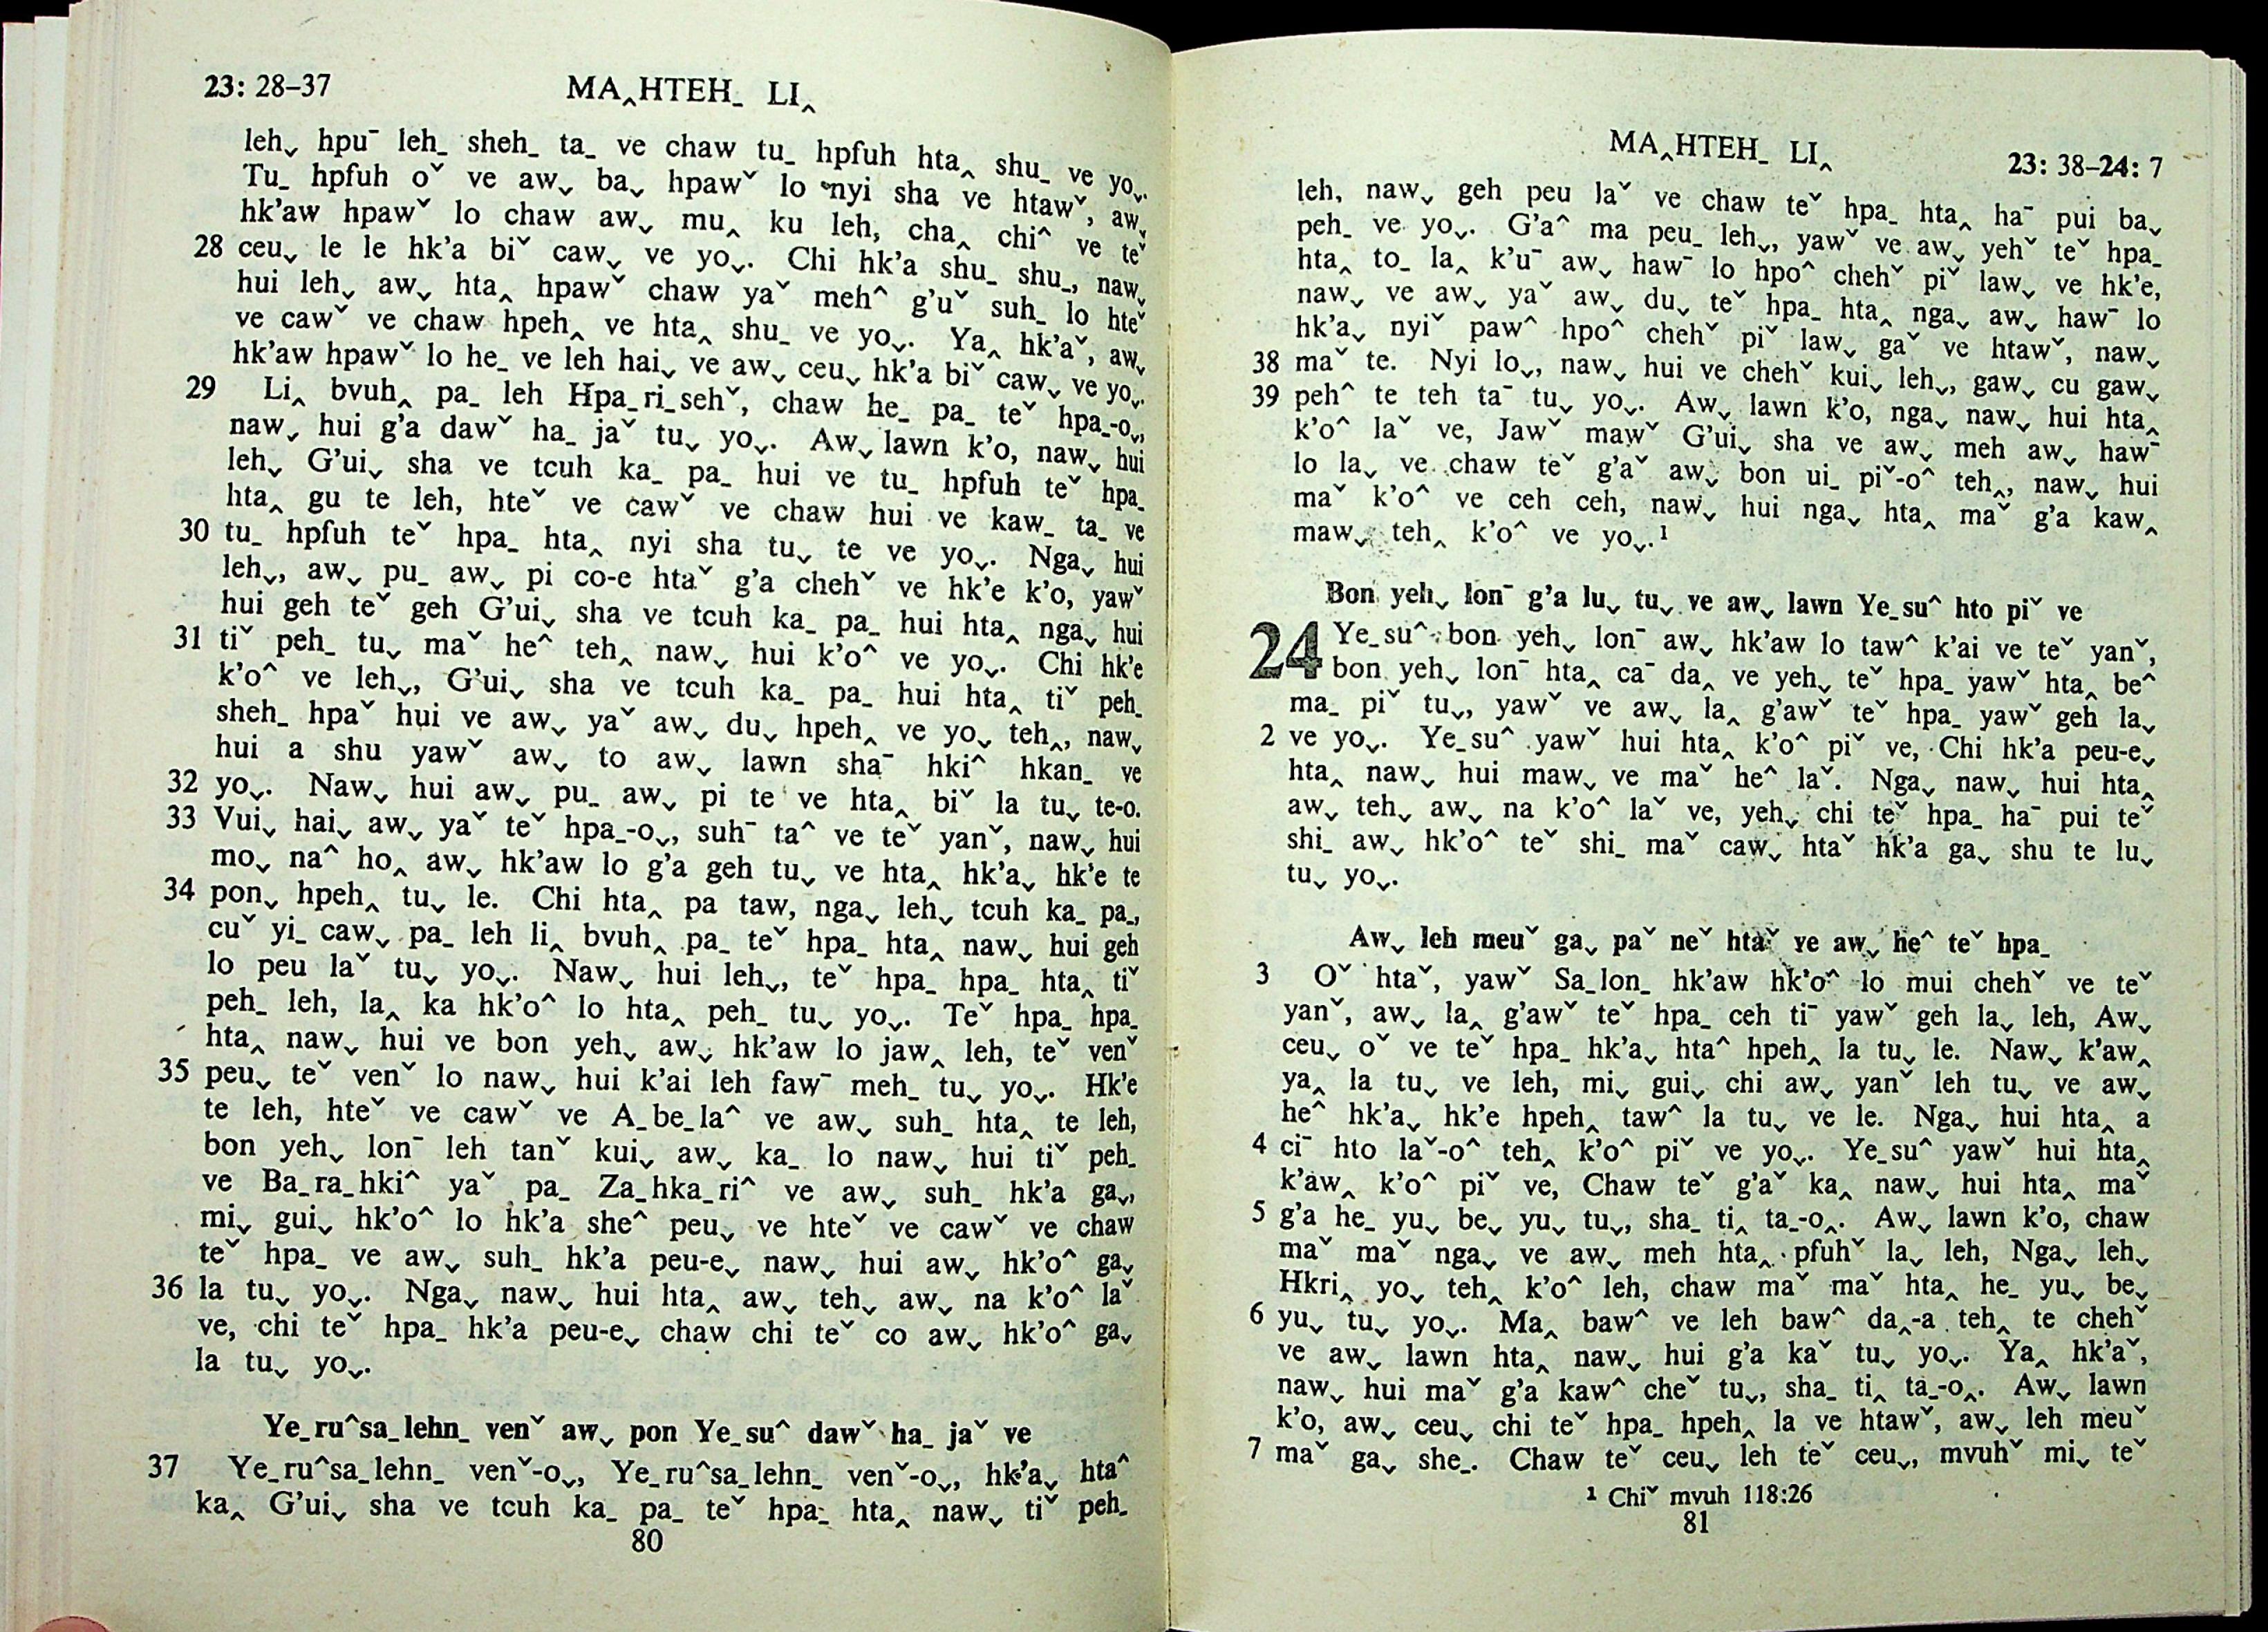 23: 28–37
MA‸HTEH_ LI‸
leh⌄ hpuˉ leh_ sheh_ ta_ ve chaw tu_ hpfuh hta‸ shu_ ve yo⌄.
Tu_ hpfuh oˇ ve aw⌄ ba⌄ hpawˇ lo nyi sha ve htawˇ, aw⌄
hk'aw hpawˇ lo chaw aw⌄ mu‸ ku leh, cha‸ chi^ ve teˇ
28 ceu⌄ le le hk'a biˇ caw⌄ ve yo⌄. Chi hk'a shu_ shu_, naw⌄
hui leh⌄ aw⌄ hta‸ hpawˇ chaw yaˇ meh^ g'uˇ suh_ lo hteˇ
ve cawˇ ve chaw hpeh‸ ve hta‸ shu_ ve yo⌄. Ya‸ hk'aˇ, aw⌄
hk'aw hpawˇ lo he_ ve leh hai⌄ ve aw⌄ ceu⌄ hk'a biˇ caw⌄ ve yo⌄.
29 Li‸ bvuh‸ pa_ leh Hpa_ri_sehˇ, chaw he_ pa_ teˇ hpa_-o⌄,
naw⌄ hui g'a dawˇ ha_ jaˇ tu⌄ yo⌄. Aw⌄ lawn k'o, naw⌄ hui
leh⌄ G'ui⌄ sha ve tcuh ka_ pa_ hui ve tu_ hpfuh teˇ hpa_
hta‸ gu te leh, hteˇ ve cawˇ ve chaw hui ve kaw_ ta_ ve
30 tu_ hpfuh teˇ hpa_ hta‸ nyi sha tu⌄ te ve yo⌄. Nga⌄ hui
leh⌄, aw⌄ pu_ aw⌄ pi co-e htaˇ g'a chehˇ ve hk'e k'o, yawˇ
hui geh teˇ geh G'ui⌄ sha ve tcuh ka_ pa_ hui hta‸ nga⌄ hui
31 tiˇ peh_ tu⌄ maˇ he^ teh‸ naw⌄ hui k'o^ ve yo⌄. Chi hk'e
k'o^ ve leh⌄, G'ui⌄ sha ve tcuh ka_ pa_ hui hta‸ tiˇ peh_
sheh_ hpaˇ hui ve aw⌄ yaˇ aw⌄ du⌄ hpeh‸ ve yo⌄ teh‸, naw⌄
hui a shu yawˇ aw⌄ to aw⌄ lawn shaˉ hki^ hkan_ ve
32 yo⌄. Naw⌄ hui aw⌄ pu_ aw⌄ pi te ve hta‸ biˇ la tu⌄ te-o.
33 Vui⌄ hai⌄ aw⌄ yaˇ teˇ hpa_-o⌄, suhˉ ta^ ve teˇ yanˇ, naw⌄ hui
mo⌄ na^ ho‸ aw⌄ hk'aw lo g'a geh tu⌄ ve hta‸ hk'a⌄ hk'e te
34 pon⌄ hpeh‸ tu⌄ le. Chi hta‸ pa taw, nga⌄ leh⌄ tcuh ka_ pa_,
cuˇ yi_ caw⌄ pa_ leh li‸ bvuh‸ pa_ teˇ hpa_ hta‸ naw⌄ hui geh
lo peu laˇ tu⌄ yo⌄. Naw⌄ hui leh⌄, teˇ hpa_ hpa_ hta‸ tiˇ
peh_ leh, la‸ ka hk'o^ lo hta‸ peh_ tu⌄ yo⌄. Teˇ hpa_ hpa_
hta‸ naw⌄ hui ve bon yeh⌄ aw⌄ hk'aw lo jaw‸ leh, teˇ venˇ
35 peu⌄ teˇ venˇ lo naw⌄ hui k'ai leh fawˉ meh_ tu⌄ yo⌄. Hk'e
te leh, hteˇ ve cawˇ ve A_be_la^ ve aw⌄ suh_ hta‸ te leh,
bon yeh⌄ lonˉ leh tanˇ kui⌄ aw⌄ ka_ lo naw⌄ hui tiˇ peh_
ve Ba_ra_hki^ yaˇ pa_ Za_hka_ri^ ve aw⌄ suh_ hk'a ga⌄,
mi⌄ gui⌄ hk'o^ lo hk'a she^ peu⌄ ve hteˇ ve cawˇ ve chaw
teˇ hpa_ ve aw⌄ suh_ hk'a peu-e⌄ naw⌄ hui aw⌄ hk'o^ ga⌄
36 la tu⌄ yo⌄. Nga⌄ naw⌄ hui hta‸ aw⌄ teh⌄ aw⌄ na k'o^ laˇ
ve, chi teˇ hpa_ hk'a peu-e⌄ chaw chi teˇ co aw⌄ hk'o^ ga⌄
la tu⌄ yo⌄.
Ye_ru^sa_lehn_ venˇ aw⌄ pon Ye_su^ dawˇ ha_ jaˇ ve
37 Ye_ru^sa_lehn_ venˇ-o⌄, Ye_ru^sa_lehn_ venˇ-o⌄, hk'a⌄ hta^
ka‸ G'ui⌄ sha ve tcuh ka_ pa_ teˇ hpa_ hta‸ naw⌄ tiˇ peh_
80
MA‸HTEH_ LI‸
23: 38–24: 7
leh, naw⌄ geh peu laˇ ve chaw teˇ hpa_ hta‸ haˉ pui ba⌄
peh_ ve yo⌄. G'a^ ma peu_ leh⌄, yawˇ ve aw⌄ yehˇ teˇ hpa_
hta‸ to_ la‸ k'uˉ aw⌄ hawˉ lo hpo^ chehˇ piˇ law⌄ ve hk'e,
naw⌄ ve aw⌄ yaˇ aw⌄ du⌄ teˇ hpa_ hta‸ nga⌄ aw⌄ hawˉ lo
hk'a⌄ nyiˇ paw^ hpo^ chehˇ piˇ law⌄ gaˇ ve htawˇ, naw⌄
38 maˇ te. Nyi lo⌄, naw⌄ hui ve chehˇ kui⌄ leh⌄, gaw⌄ cu gaw⌄
39 peh^ te teh taˉ tu⌄ yo⌄. Aw⌄ lawn k'o, nga⌄ naw⌄ hui hta‸
k'o^ laˇ ve, Jawˇ mawˇ G'ui⌄ sha ve aw⌄ meh aw⌄ hawˉ
lo la⌄ ve chaw teˇ g'aˇ aw⌄ bon ui_ piˇ-o^ teh‸, naw⌄ hui
maˇ k'o^ ve ceh ceh, naw⌄ hui nga⌄ hta‸ maˇ g'a kaw‸
maw⌄ teh‸ k'o^ ve yo⌄.¹
Bon yeh⌄ lonˉ g'a lu⌄ tu⌄ ve aw⌄ lawn Ye_su^ hto piˇ ve
24 Ye_su^ bon yeh⌄ lonˉ aw⌄ hk'aw lo taw^ k'ai ve teˇ yanˇ,
bon yeh⌄ lonˉ hta‸ caˉ da‸ ve yeh⌄ teˇ hpa_ yawˇ hta‸ be^
ma_ piˇ tu⌄, yawˇ ve aw⌄ la‸ g'awˇ teˇ hpa_ yawˇ geh la⌄
2 ve yo⌄. Ye_su^ yawˇ hui hta‸ k'o^ piˇ ve, Chi hk'a peu-e⌄
hta‸ naw⌄ hui maw⌄ ve maˇ he^ laˇ. Nga⌄ naw⌄ hui hta‸
aw⌄ teh⌄ aw⌄ na k'o^ laˇ ve, yeh⌄ chi teˇ hpa_ haˉ pui teˇ
shi_ aw⌄ hk'o^ teˇ shi_ maˇ caw⌄ htaˇ hk'a ga⌄ shu te lu⌄
tu⌄ yo⌄.
Aw⌄ leh meuˇ ga⌄ paˇ neˇ htaˇ ve aw⌄ he^ teˇ hpa_
3 Oˇ htaˇ, yawˇ Sa_lon_ hk'aw hk'o^ lo mui chehˇ ve teˇ
yanˇ, aw⌄ la‸ g'awˇ teˇ hpa_ ceh tiˉ yawˇ geh la⌄ leh, Aw⌄
ceu⌄ oˇ ve teˇ hpa_ hk'a⌄ hta^ hpeh‸ la tu⌄ le. Naw⌄ k'aw‸
ya‸ la tu⌄ ve leh, mi⌄ gui⌄ chi aw⌄ yanˇ leh tu⌄ ve aw⌄
he^ hk'a⌄ hk'e hpeh‸ taw^ la tu⌄ ve le. Nga⌄ hui hta‸ a
4 ciˉ hto laˇ-o^ teh‸ k'o^ piˇ ve yo⌄. Ye_su^ yawˇ hui hta‸
k'aw‸ k'o^ piˇ ve, Chaw teˇ g'aˇ ka‸ naw⌄ hui hta‸ maˇ
5 g'a he_ yu⌄ be⌄ yu⌄ tu⌄, sha_ ti‸ ta_-o‸. Aw⌄ lawn k'o, chaw
maˇ maˇ nga⌄ ve aw⌄ meh hta‸ pfuhˇ la⌄ leh, Nga⌄ leh⌄
Hkri‸ yo⌄ teh‸ k'o^ leh, chaw maˇ maˇ hta‸ he_ yu⌄ be⌄
6 yu⌄ tu⌄ yo⌄. Ma‸ baw^ ve leh baw^ da‸-a teh‸ te chehˇ
ve aw⌄ lawn hta‸ naw⌄ hui g'a kaˇ tu⌄ yo⌄. Ya‸ hk'aˇ,
naw⌄ hui maˇ g'a kaw^ cheˇ tu⌄, sha_ ti‸ ta_-o‸. Aw⌄ lawn
k'o, aw⌄ ceu⌄ chi teˇ hpa_ hpeh‸ la ve htawˇ, aw⌄ leh meuˇ
7 maˇ ga⌄ she_. Chaw teˇ ceu⌄ leh teˇ ceu⌄, mvuhˇ mi⌄ teˇ
¹ Chiˇ mvuh 118:26
81